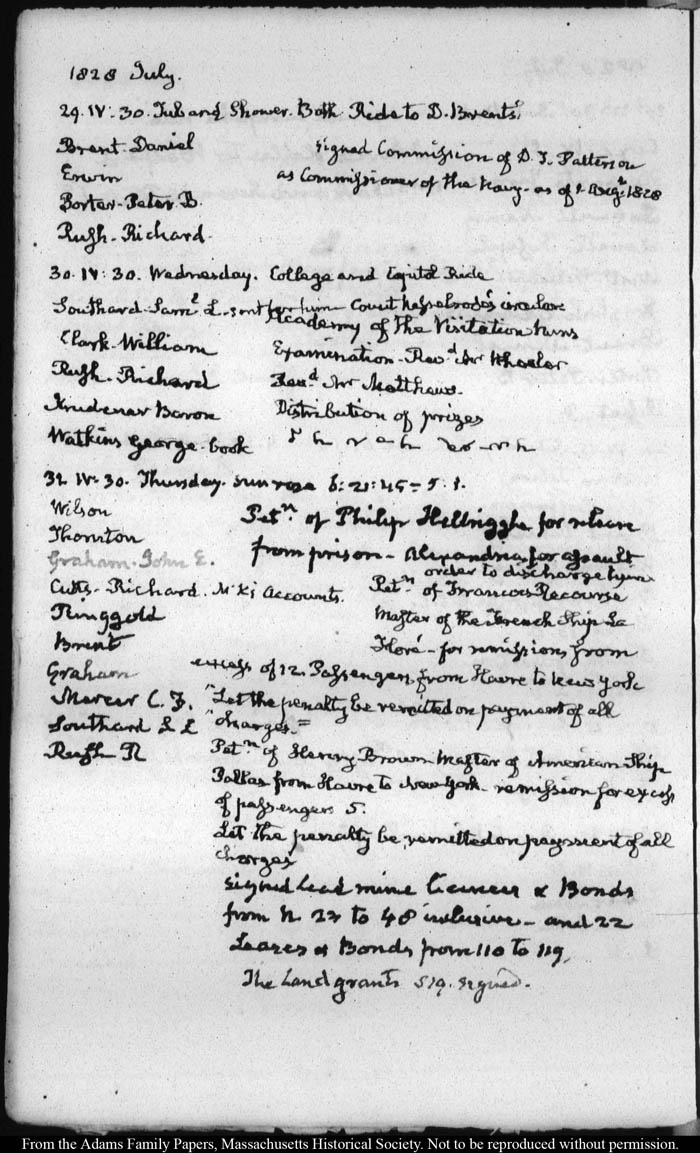 1828 July.
29. IV: 30. Tub and Shower. Bath. Ride to D. Brent's.
Brent Daniel
signed Commission of D. T. Patterson
Erwin
as Commissioner of the Navy - as of 1. Augt 1828
Porter - Peter. B.
Rush - Richard.
30. IV: 30. Wednesday. College and Capitol Ride
Southard Saml L. - sent for him - Count
Academy of the Visitation Nuns
Clark - William
Examination - Revd Mr Wheeler
Rush. Richard
Revd Mr Matthews.
Krudener Baron
Distribution of prizes
Watkins George - book
31. IV: 30. Thursday. sun rose 5: 1.
Wilson
Petn of Philip for release
Thornton
from prison - Alexandria for assault
Graham. John E.
order to discharge him
Cutts - Richard. Accounts.
Petn of Francois Recourse
Ringgold
Master of the French Ship La
Brent
for remission, from
Graham
excess of 12. Passengers, from Havre to New York
Mercer C. F.
"Let the penalty be remitted on payment of all
Southard S L
"charges."
Rush R
Petn of Henry Brown Master of American Ship
Pallas from Havre to New York - remission for excess
of passengers 5.
Let the penalty be remitted on payment of all
charges
signed Lead mine & Bonds
from N. 22 to 48 inclusive - and 22
Leases & Bonds from 110 to 119,
The Land grants signed.
From the Adams Family Papers, Massachusetts Historical Society. Not to be reproduced without permission.